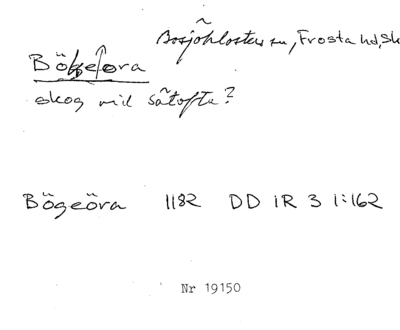 Bosjöklosters sn, Frosta hd, Sk
Bökeöra
skog vid Sätofta?
Bögeöra 1182 DD 1R 3 1:162
Nr 19150